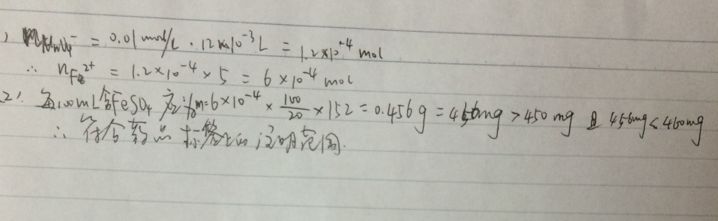 ) n MnO₄⁻ = 0.01 mol/L · 12×10⁻³ L = 1.2×10⁻⁴ mol
∴ nFe²⁺ = 1.2×10⁻⁴ × 5 = 6×10⁻⁴ mol
(2)、每100mL含FeSO₄ m=6×10⁻⁴ × 100/20 × 152 = 0.456g = 456mg > 450mg 且 456mg < 460mg
∴ 符合药品标签上的说明范围.